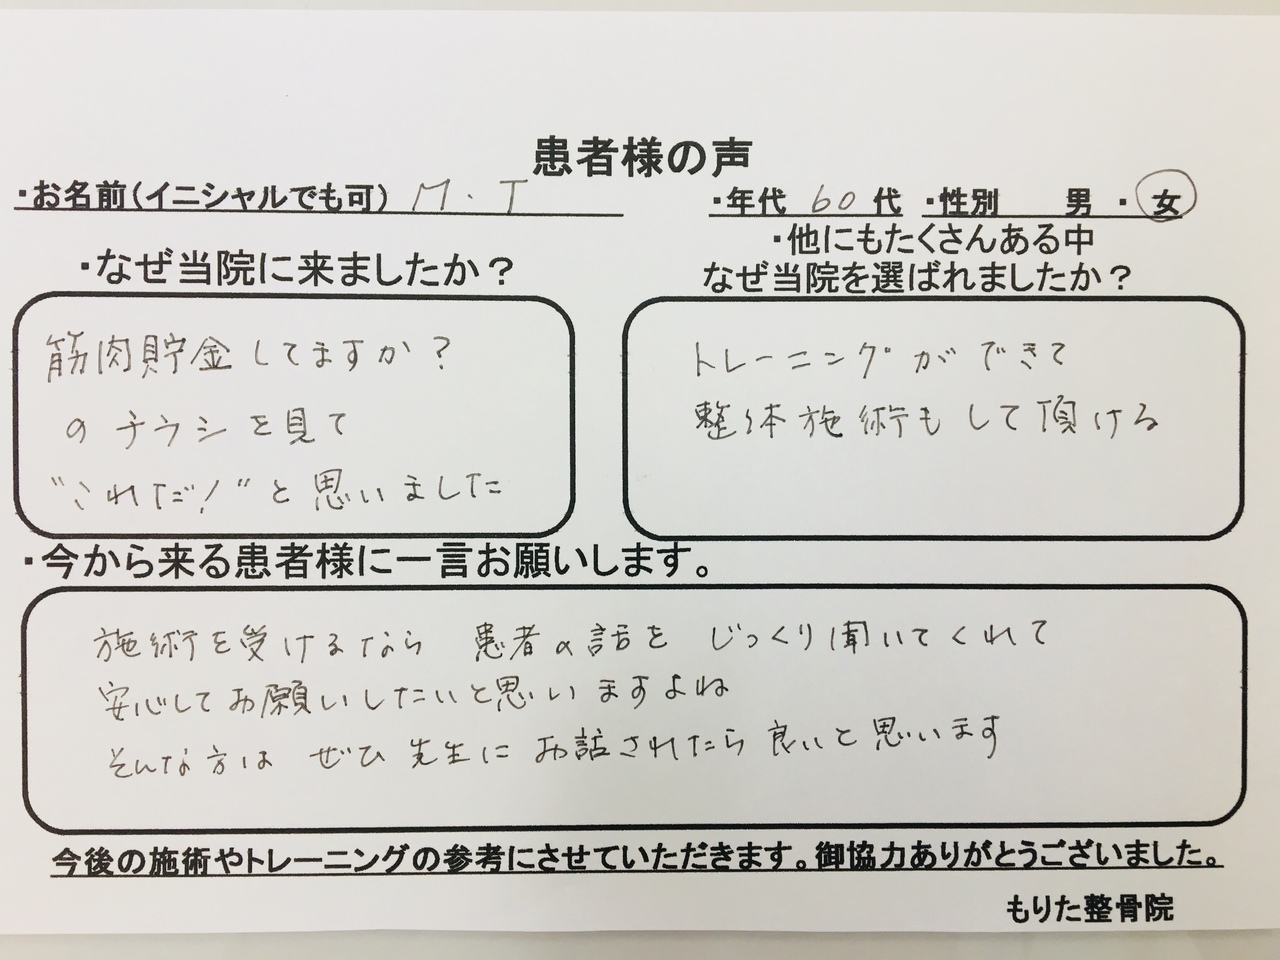 患者様の声
・お名前(イニシャルでも可) M.T ・年代 60 代 ・性別 男 ・ 女
・なぜ当院に来ましたか?
筋肉貯金してますか?
のチラシを見て
"これだ!"と思いました
・他にもたくさんある中
なぜ当院を選ばれましたか?
トレーニングができて
整体施術もして頂ける
・今から来る患者様に一言お願いします。
施術を受けるなら 患者の話を じっくり聞いてくれて
安心してお願いしたいと思いますよね
そんな方は ぜひ 先生に お話されたら良いと思います
今後の施術やトレーニングの参考にさせていただきます。御協力ありがとうございました。
もりた整骨院